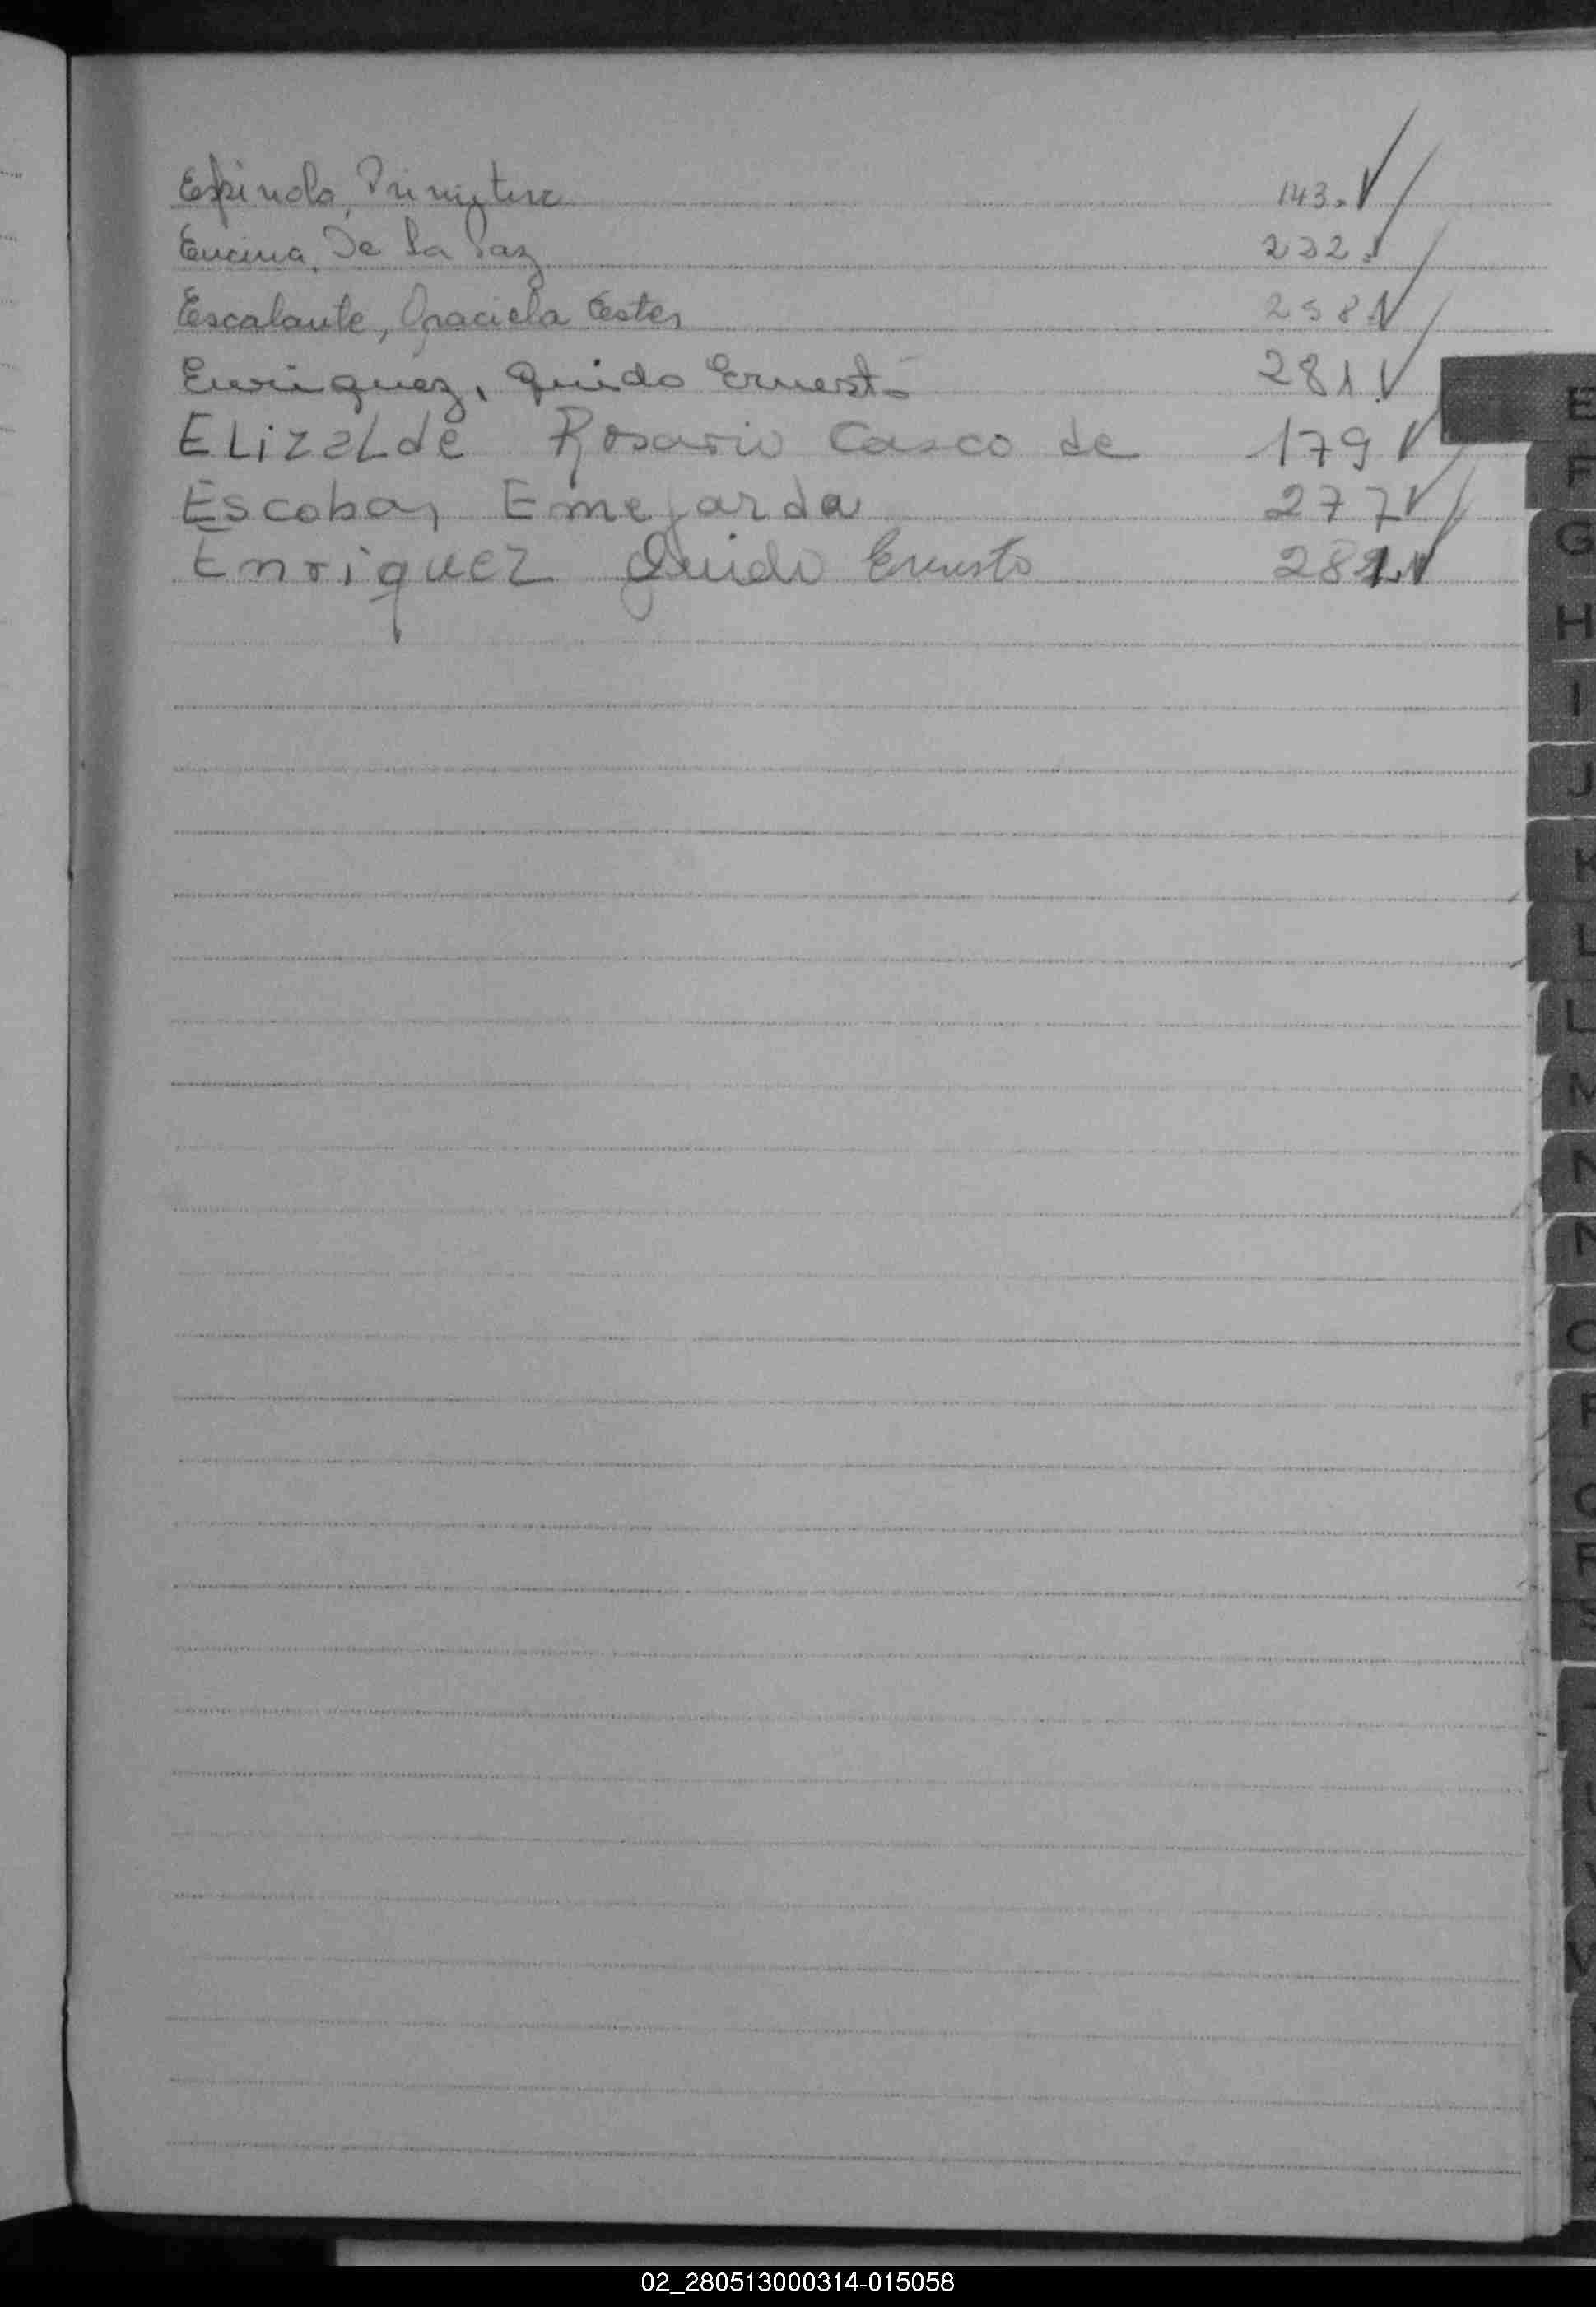 Espinola, Primitiva 143. ✓
Encina, De La Paz 232. ✓
Escalante, Graciela Ester 258. ✓
Enriquez, Guido Ernesto 281. ✓
ELizaLde Rosario Casco de 179 ✓
Escobar Emejarda 277 ✓
Enriquez Guido Ernesto 281. ✓
E
F
G
H
I
J
K
L
L
M
N
N
O
P
Q
R
S
U
V
02_280513000314-015058